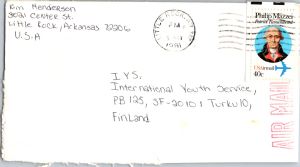 Tom Henderson
3021 Center St.
Little Rock, Arkansas 72206
U.S.A
LITTLE ROCK
PM
1981
Philip Mazzei
Patriot Remembered
USAirmail
40c
I.Y.S.
International Youth Service,
PB 125, SF-20101 Turku 10,
Finland
AIR MAIL